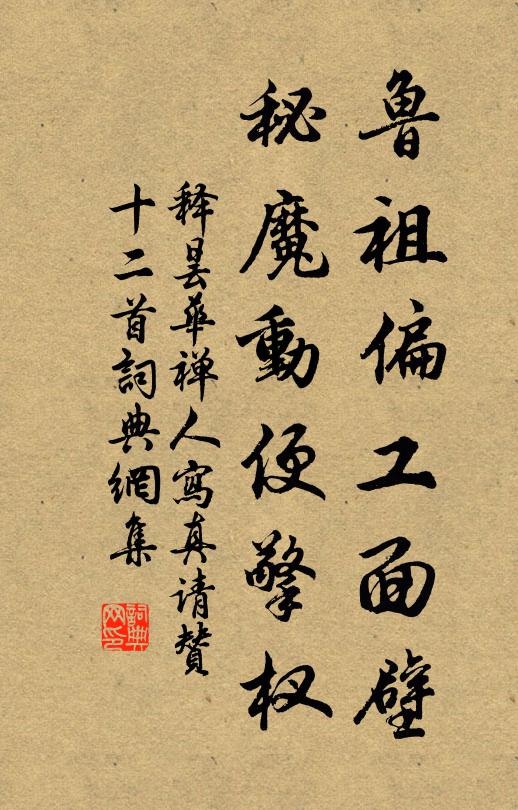 鲁祖偏工面壁
秘魔動便擎杈
释曇華禅人寫真请贊
十二首詞典網集
詞典网印